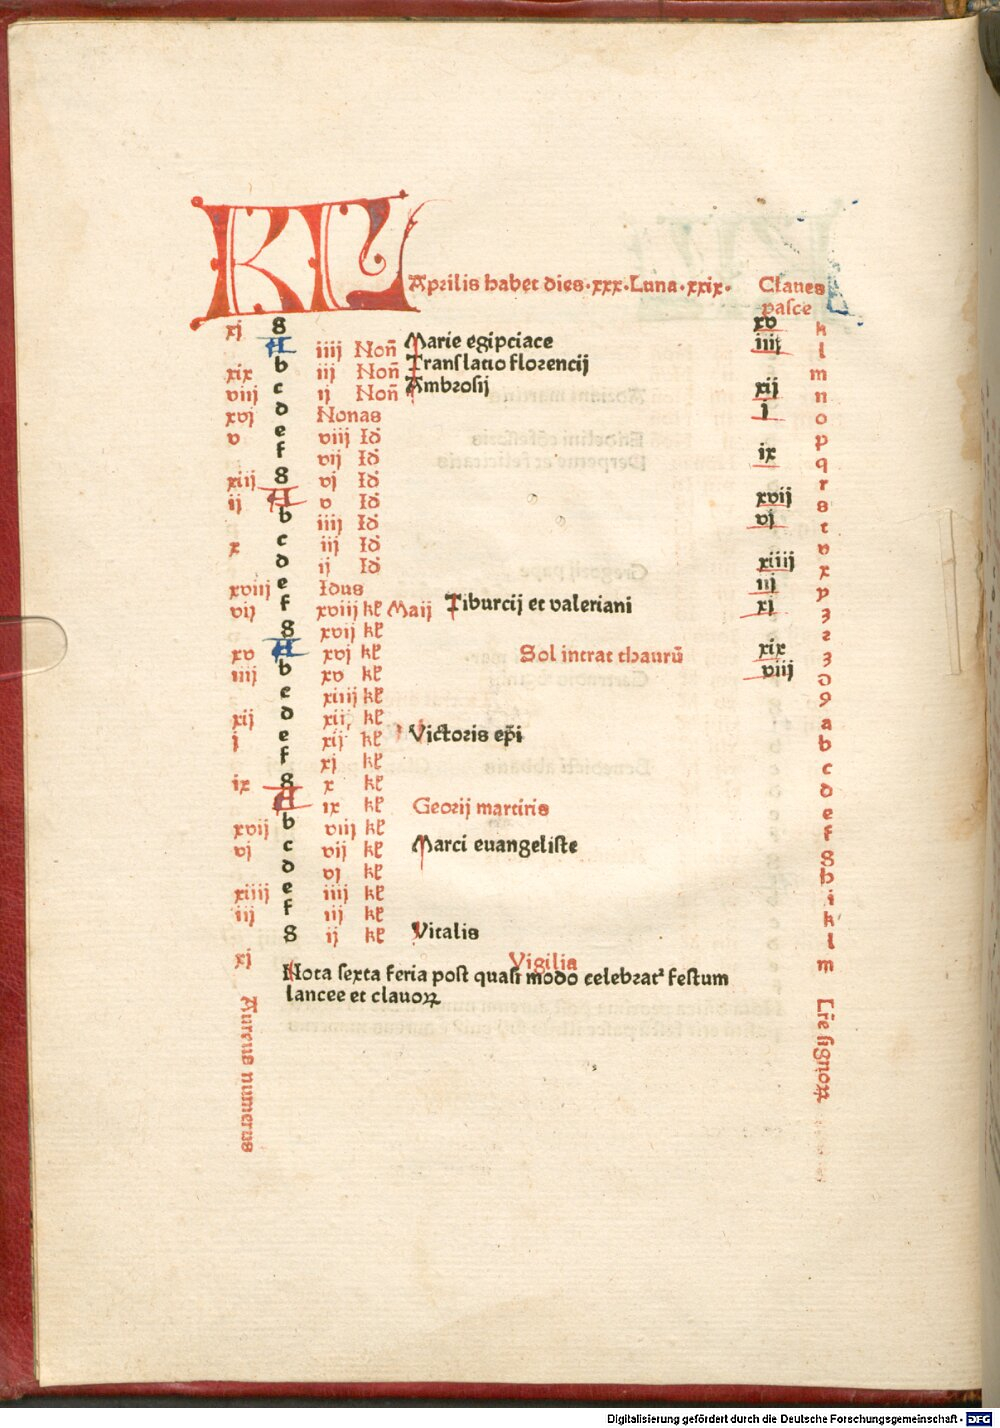 KL
Aprilis habet dies·xxx·Luna·xxix· Claues
pasce
xj g xv k
A iiij Non̄ Marie egipciace iiij l
xix b iij Non̄ Translatio florencij m
viij c ij Non̄ Ambrosij xij n
xvj d Nonas j o
v e viij Id p
f vij Id ix q
xiij g vj Id r
ij A v Id xvij s
b iiij Id vj t
x c iij Id v
d ij Id xiiij x
xviij e Idus iij y
vij f xviij kl Maij Tiburcij et valeriani xj z
g xvij kl ꝛ
xv A xvj kl Sol intrat thaurū xix ʒ
iiij b xv kl viij ꝺ
c xiiij kl 9
xij d xiij kl a
j e xij kl Victoris ep̄i b
f xj kl c
ix g x kl d
A ix kl Georij martiris e
xvij b viij kl f
vj c vij kl Marci euangeliste g
d vj kl h
xiiij e iiij kl i
iij f iij kl k
g ij kl Vitalis l
xj Vigilia m
Nota sexta feria post quasi modo celebrat᷑ festum
lancee et clauoꝝ
Aureus numerus
Lr̄e signoꝝ
Digitalisierung gefördert durch die Deutsche Forschungsgemeinschaft - DFG